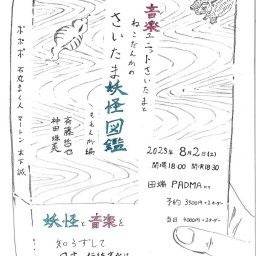 音楽ユニットさいたまと
ねこだんかの
さいたま妖怪図鑑
ももんが編
斉藤哲也
神田珠美
ポポポ 石丸まくん マートン 木下誠
2025年8月2日(土)
開場18:00 開演18:30
田端 PADMA にて
予約 3500円+2オーダー
当日 4000円+2オーダー
妖怪と音楽を
知らずして